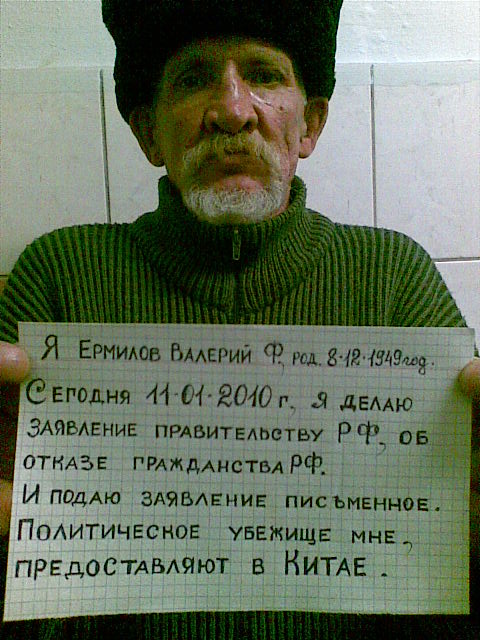 Я Ермилов Валерий Ф, род. 8-12-1949год.
Сегодня 11-01-2010 г, я делаю
заявление правительству РФ, об
отказе гражданства РФ.
И подаю заявление письменное.
Политическое убежище мне,
предоставляют в Китае.